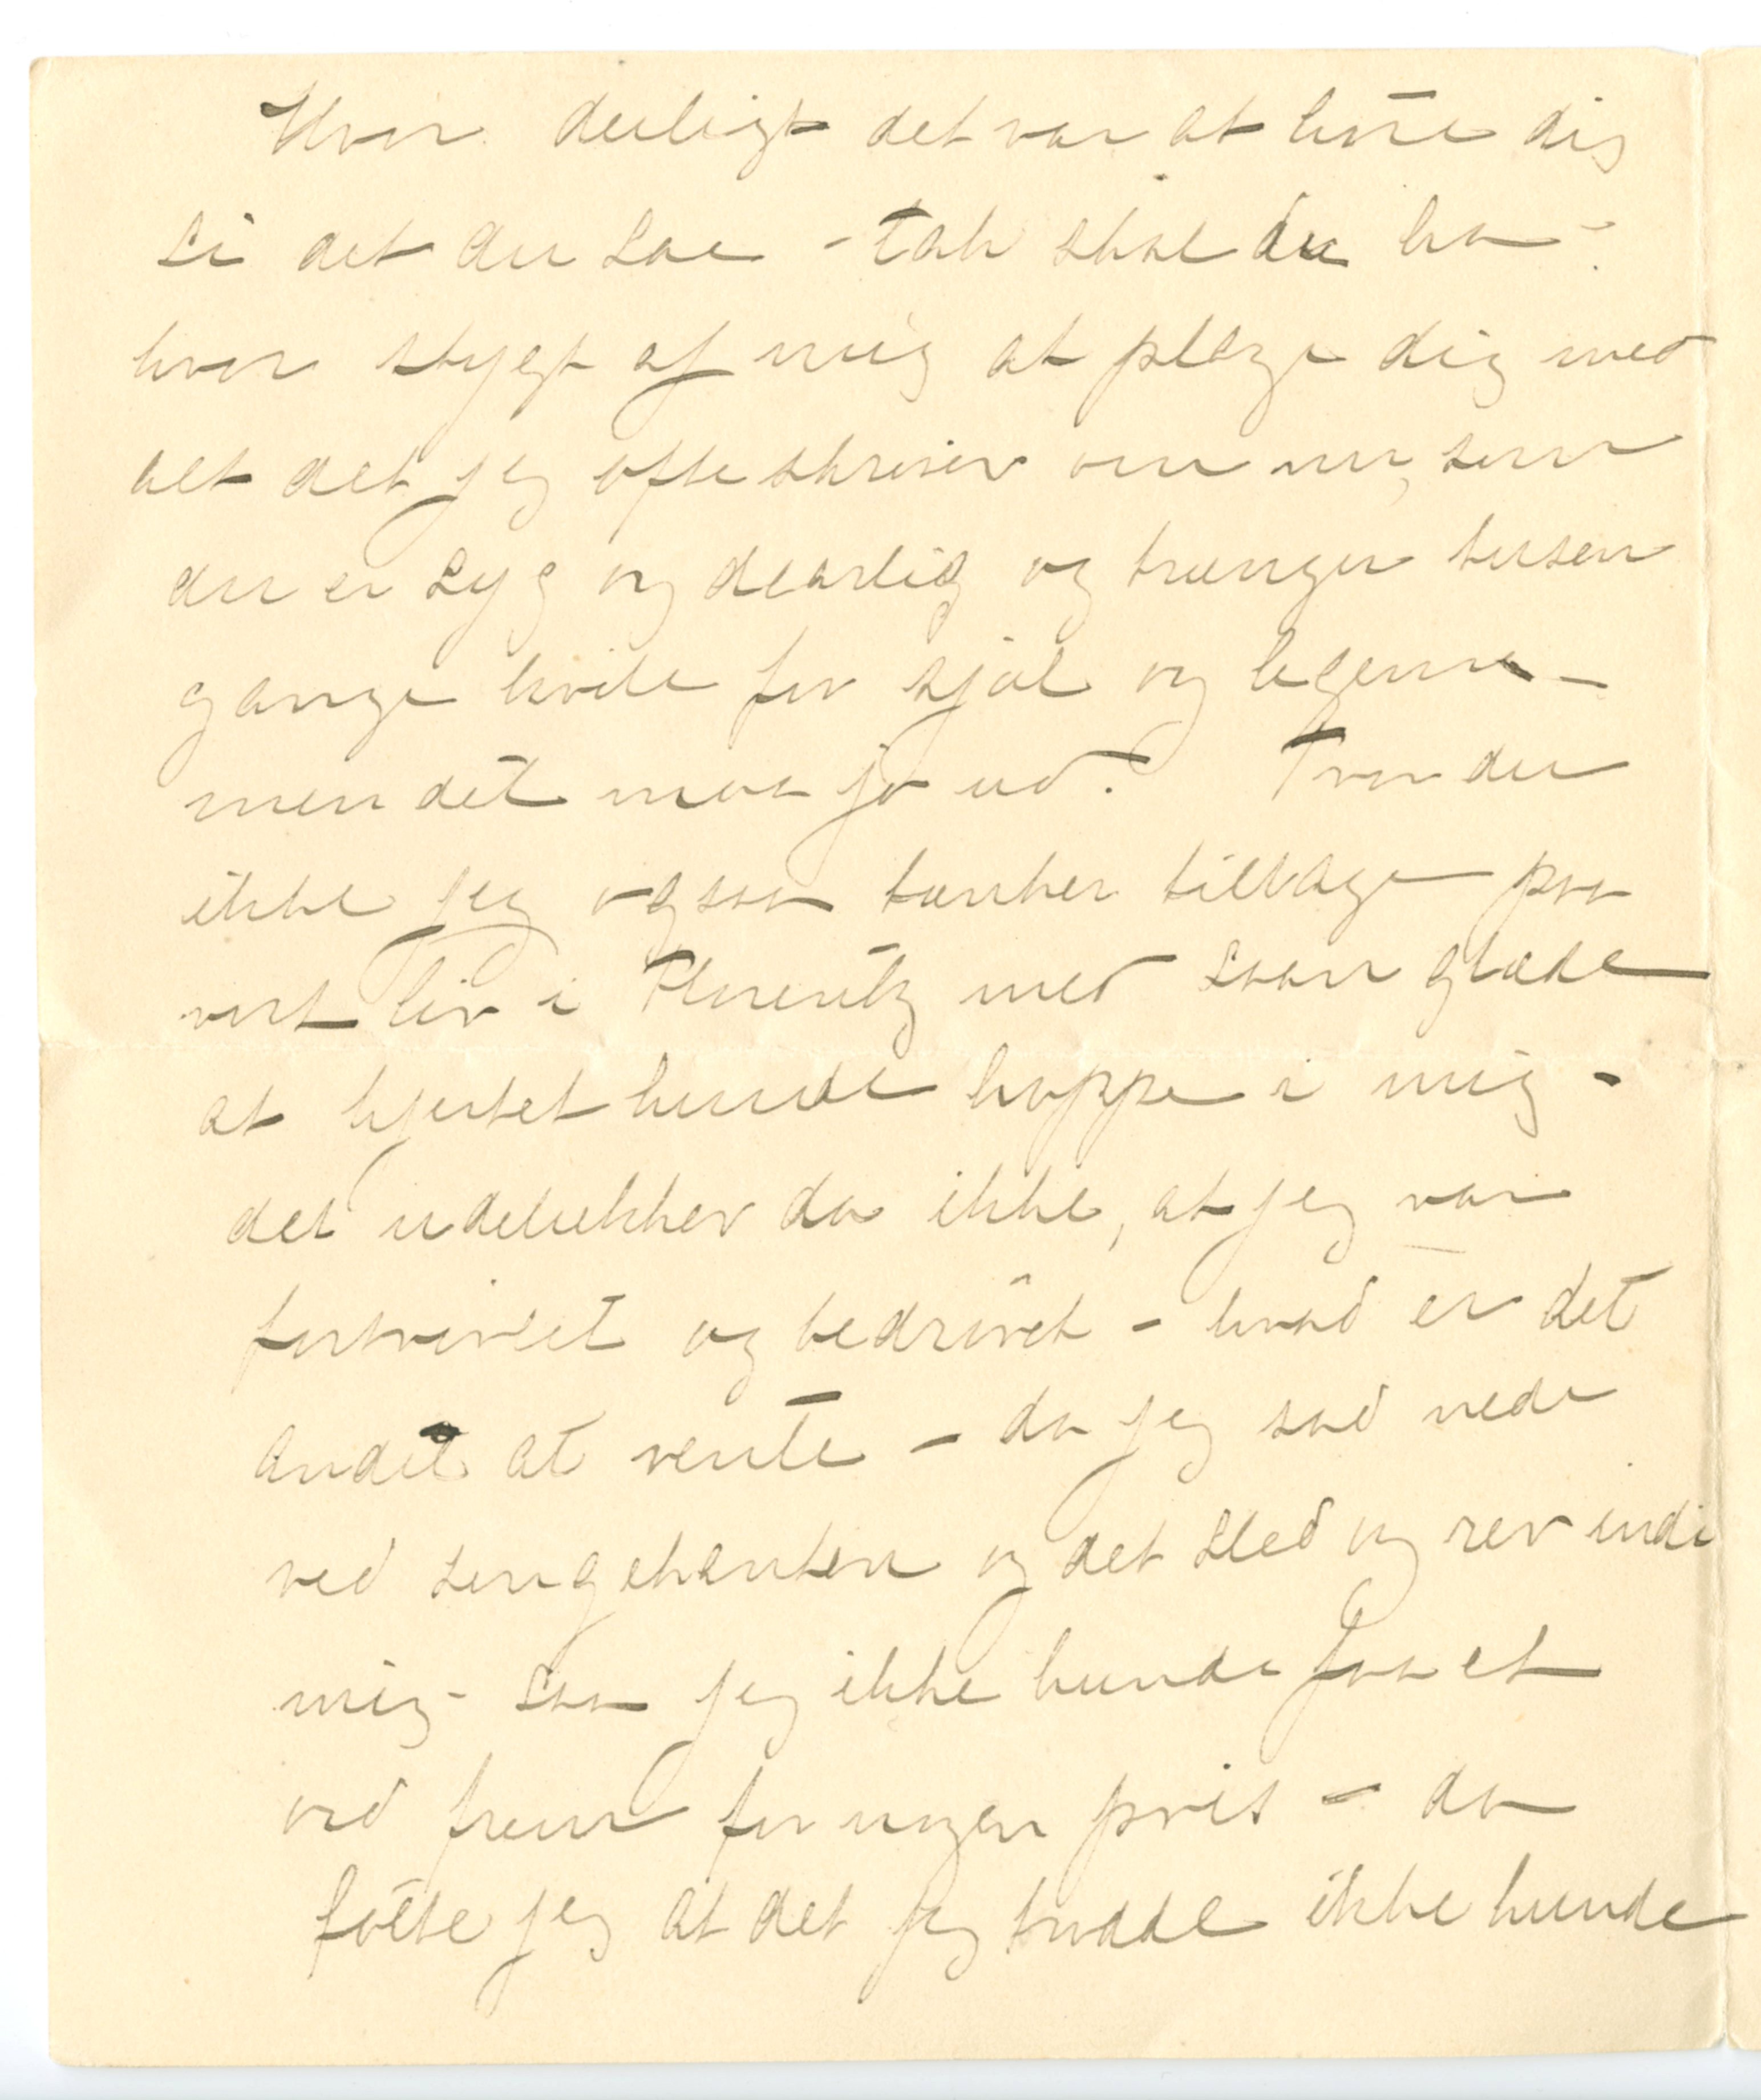 Hvor deiligt det var at höre dig
si det du sae - tak skal du ha -
hvor stygt af mig at plage dig med
alt det jeg ofte skriver om nu, som
du er syg og daarlig og trænger tusen
gange hvile for sjæl og legeme -
men det maa jo ud. Tror du
ikke jeg ogsaa tænker tilbage paa
vort liv i Florentz med saan glæde
at hjertet kunde hoppe i mig -
det udelukker da ikke, at jeg var
fortvivlet og bedrövet - hvad er det
andet at vente - da jeg sad nede
ved sengekanten og det sled og rev indi
mig - saa jeg ikke kunde faa et
ord frem for nogen pris - da
fölte jeg at det jeg trodde ikke kunde